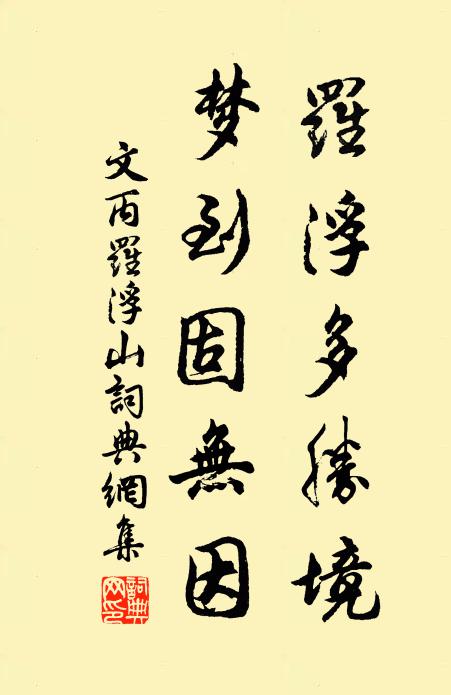 羅浮多勝境
梦到固無因
文丙羅浮山詞典網集
詞典網印